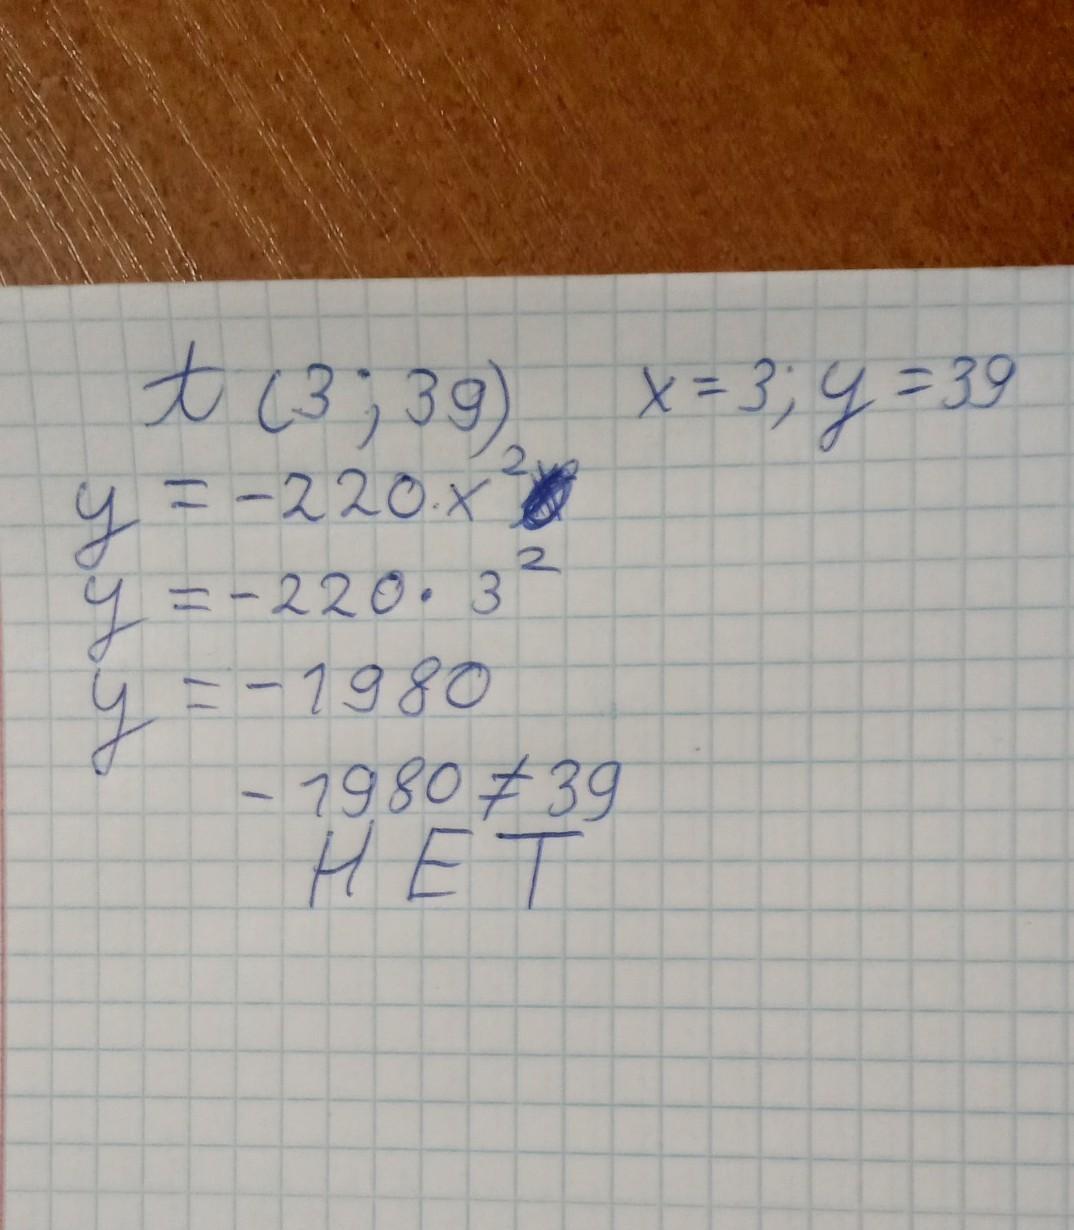 t (3; 39) x = 3; y = 39
y = -220·x²
y = -220· 3²
y = -1980
-1980 ≠ 39
НЕТ